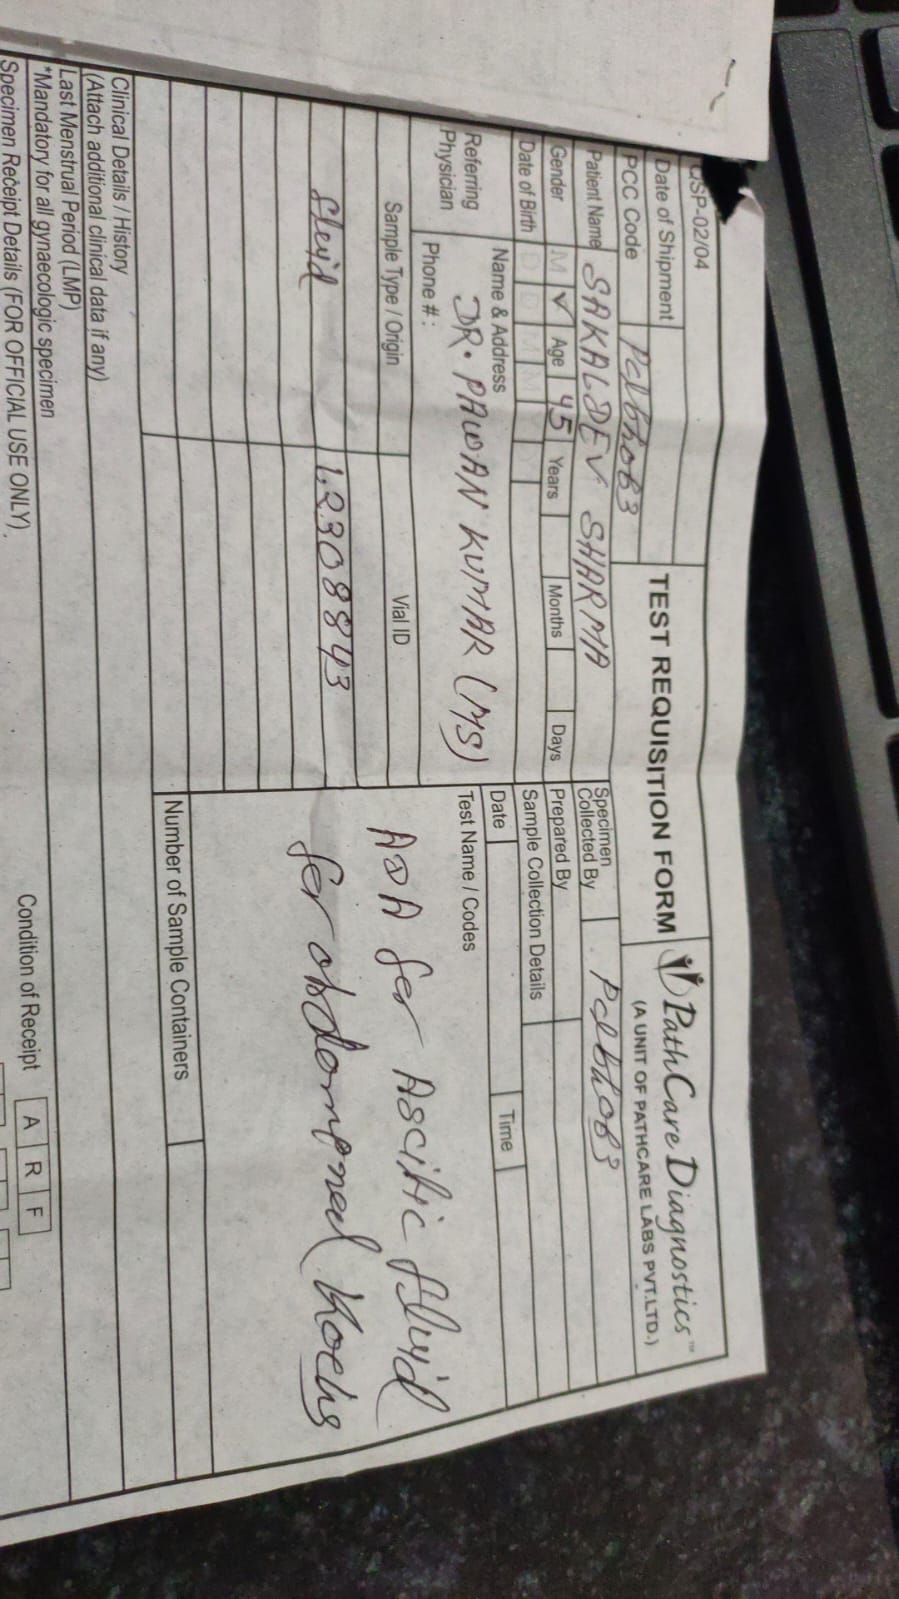 QSP-02/04
TEST REQUISITION FORM
PathCare Diagnostics™
(A UNIT OF PATHCARE LABS PVT.LTD.)
Date of Shipment
PCC Code Pclbhob3
Specimen Collected By Pclbhob3
Patient Name SAKALDEV SHARMA
Prepared By
Gender M ✓ Age 45 Years Months Days
Sample Collection Details
Date of Birth D D M M Y
Date Time
Referring Physician
Name & Address
DR. PAWAN KUMAR (MS)
Phone # :
Test Name / Codes
ADA for Ascitic fluid
for abdompneal Kochs
Sample Type / Origin Vial ID
fluid 12308843
Number of Sample Containers
Clinical Details / History
(Attach additional clinical data if any)
Last Menstrual Period (LMP)
*Mandatory for all gynaecologic specimen
Specimen Receipt Details (FOR OFFICIAL USE ONLY).
Condition of Receipt A R F